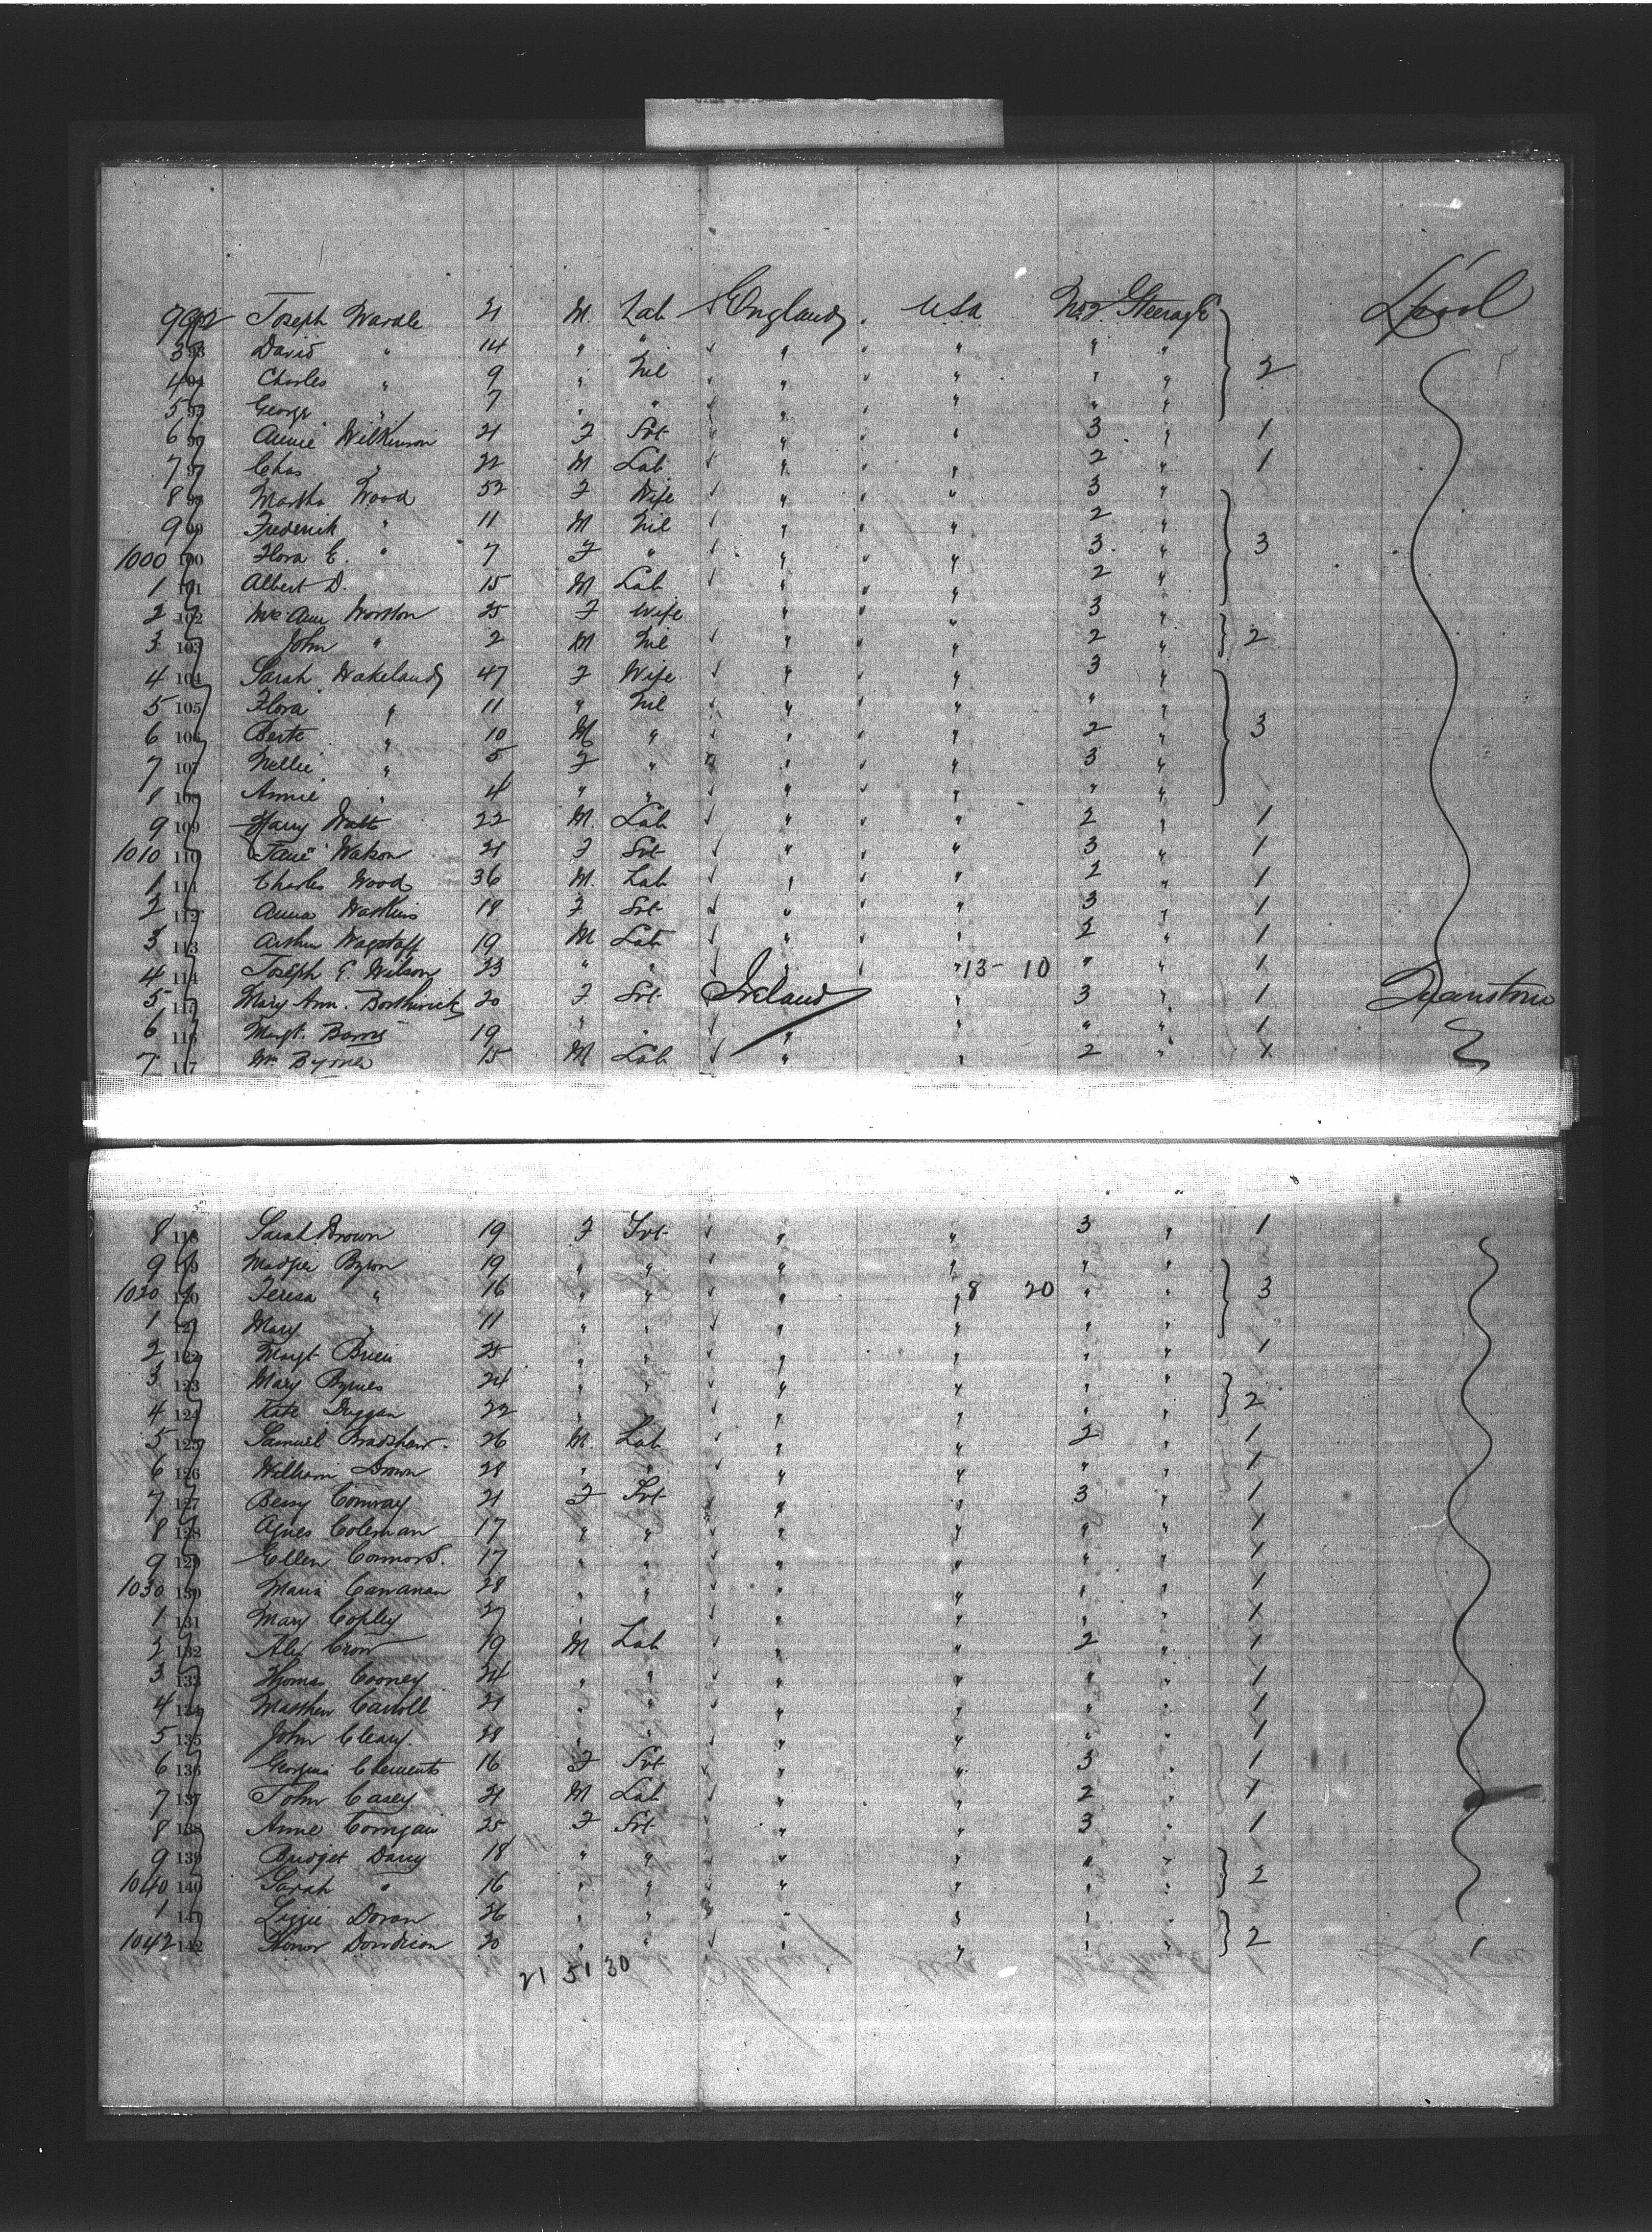 992 Joseph Wardle 21 M. Lab England " USA No 2 Steerage L'pool
3 93 David " 14 " " " " " "
4 94 Charles " 9 " Nil " " " " 2
5 95 George " 7 " " " " " "
6 96 Annie Wilkinson 21 F Svt " " 3 " 1
7 97 Chas " 22 M Lab " " 2 " 1
8 98 Martha Wood 52 F Wife " " 3 "
9 99 Frederick " 11 M Nil " " 2 "
1000 100 Flora E. " 7 F " " " 3 " 3
1 101 Albert D. 15 M Lab " " 2 "
2 102 Mrs Ann Worston 25 F Wife " " 3 "
3 103 John " 2 M Nil " " 2 " 2
4 104 Sarah Wakeland 47 F Wife " " 3 "
5 105 Flora " 11 " Nil " " " "
6 106 Berte " 10 M " " " 2 " 3
7 107 Nellie " 5 F " " " 3 "
8 108 Annie " 4 " " " " " "
9 109 Harry Watts 22 M. Lab " " 2 " 1
1010 110 Jane Watson 21 F Svt " " 3 " 1
1 111 Charles Wood 36 M. Lab " " 2 " 1
2 112 Anna Watkins 18 F Svt " " 3 " 1
3 113 Arthur Wagstaff 19 M Lab " " 2 " 1
4 114 Joseph E. Wilson 23 " " " " 13- 10 " " 1
5 115 Mary Ann. Borthwick 20 F Svt Ireland " 3 " 1
6 116 Margt. 19 " " " " " " 1
7 117 Wm Byrne 15 M Lab " " 2 " 1
8 118 Sarah Brown 19 F Svt " " 3 " 1
9 119 Byron 19 " " " " " "
1020 120 Teresa " 16 " " " " 8 20 " " 3
1 121 Mary " 11 " " " " " "
2 122 Margt 25 " " " " " " 1
3 123 Mary Byrnes 24 " " " " " "
4 124 Kate Duggan 22 " " " " " " 2
5 125 Samuel Bradshaw 26 M. Lab " " 2 " 1
6 126 William Brown 28 " " " " " " 1
7 127 Bessy Conway 21 F Svt " " 3 " 1
8 128 Agnes Coleman 17 " " " " " " 1
9 129 Ellen Connors. 17 " " " " " " 1
1030 130 Maria Cavanan 28 " " " " " " 1
1 131 Mary Copley 27 " " " " " " 1
2 132 Alex Crow 19 M Lab " " 2 " 1
3 133 Thomas Cooney 24 " " " " " " 1
4 134 Matthew Carroll 21 " " " " " " 1
5 135 John Cleary. 28 " " " " " " 1
6 136 Georgina Clements 16 F Svt " " 3 " 1
7 137 John Casey 21 M Lab " " 2 " 1
8 138 Anne 25 F Svt " " 3 " 1
9 139 Bridget Darcy 18 " " " " " "
1040 140 Sarah " 16 " " " " " " 2
1 141 Lizzie Doran 26 " " " " " "
1042 142 Honor 20 " " " " " " 2
21 51 30